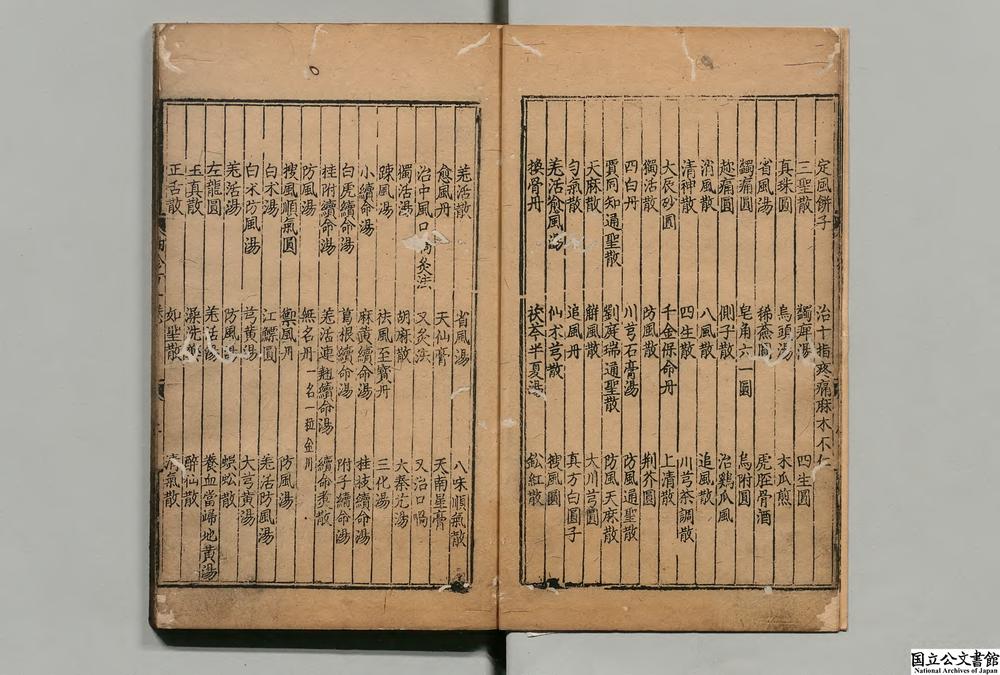 定風餅子 治十指疼痛麻木不仁
三聖散 蠲痺湯 四生圓
真珠圓 烏頭湯 木瓜煎
省風湯 豨薟圓 虎脛骨酒
蠲痛圓 皂角六一圓 烏附圓
趂痛圓 側子散 治鷄瓜風
消風散 八風散 追風散
清神散 四生散 川芎茶調散
大辰砂圓 千金保命丹 上清散
獨活散 防風散 荆芥圓
四白丹 川芎石膏湯 防風通聖散
賈同知通聖散 劉庭瑞通聖散 防風天麻散
天麻散 解風散 大川芎圓
勻氣散 追風丹 真方白圓子
羌活愈風湯 仙术芎散 搜風圓
換骨丹 茯苓半夏湯 鉛紅散
羌活散 省風湯 八味順氣散
愈風丹 天仙膏 天南星膏
治中風口喎灸法 又灸法 又治口喎
獨活湯 胡麻散 大秦艽湯
踈風湯 祛風至寶丹 三化湯
小續命湯 麻黄續命湯 桂枝續命湯
白虎續命湯 葛根續命湯 附子續命湯
桂附續命湯 羌活連翹續命湯 續命煮散
防風湯 無名丹一名一粒金丹
搜風順氣圓 禦風丹 防風湯
白术湯 江鰾圓 羌活防風湯
白术防風湯 芎黄湯 大芎黄湯
羌活湯 防風湯 蜈蚣散
左龍圓 羌活湯 養血當歸地黄湯
玉真散 醉仙散
正舌散 如聖散 清氣散
国立公文書館
National Archives of Japan